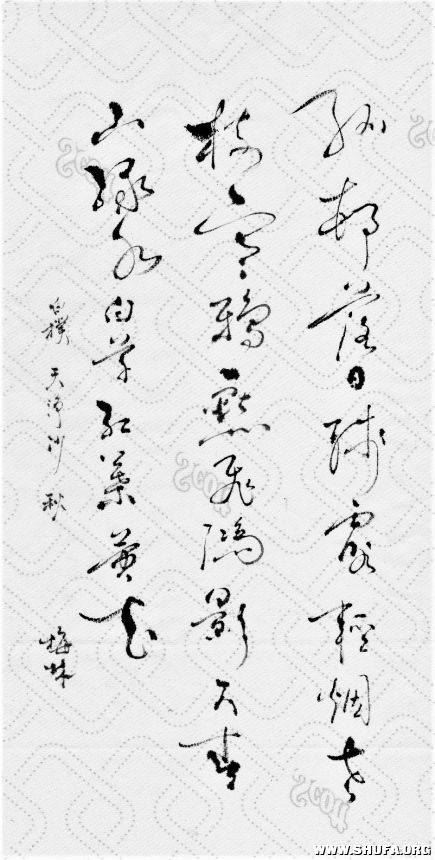 孤邨落日殘霞輕烟老
樹寒鴉一點飛鴻影下青
山緑水白草紅葉黄花
白樸 天淨沙 秋
梅林
WWW.SHUFA.ORG